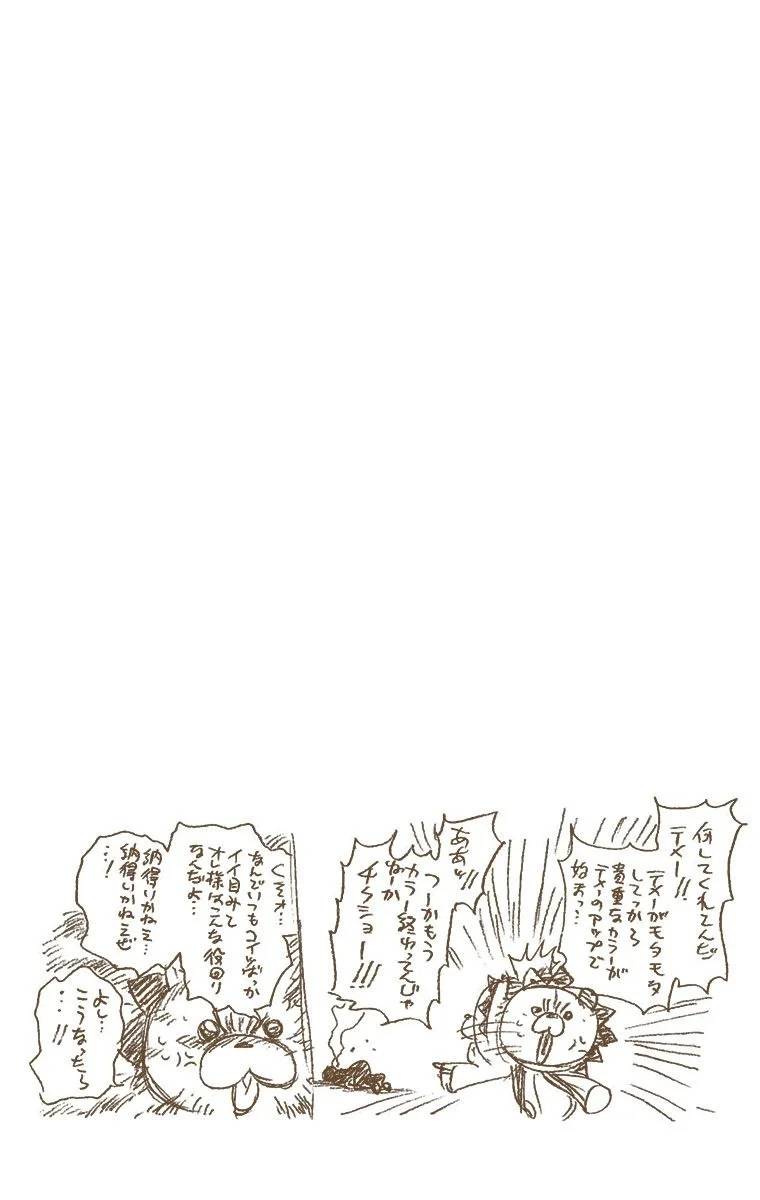 何してくれてんだ
テメー!!
テメーがモタモタ
してっから
貴重なカラーが
テメーのアップで
始まっ…
ああッ!!
つーかもう
カラー終わってんじゃ
ねーか
チクショー!!!
くそォ…
なんでいつもコイツばっか
イイ目みて
オレ様はこんな役回り
なんだよ…
納得いかねえ…
納得いかねえぜ
…!
よし…
こうなったら
…!!